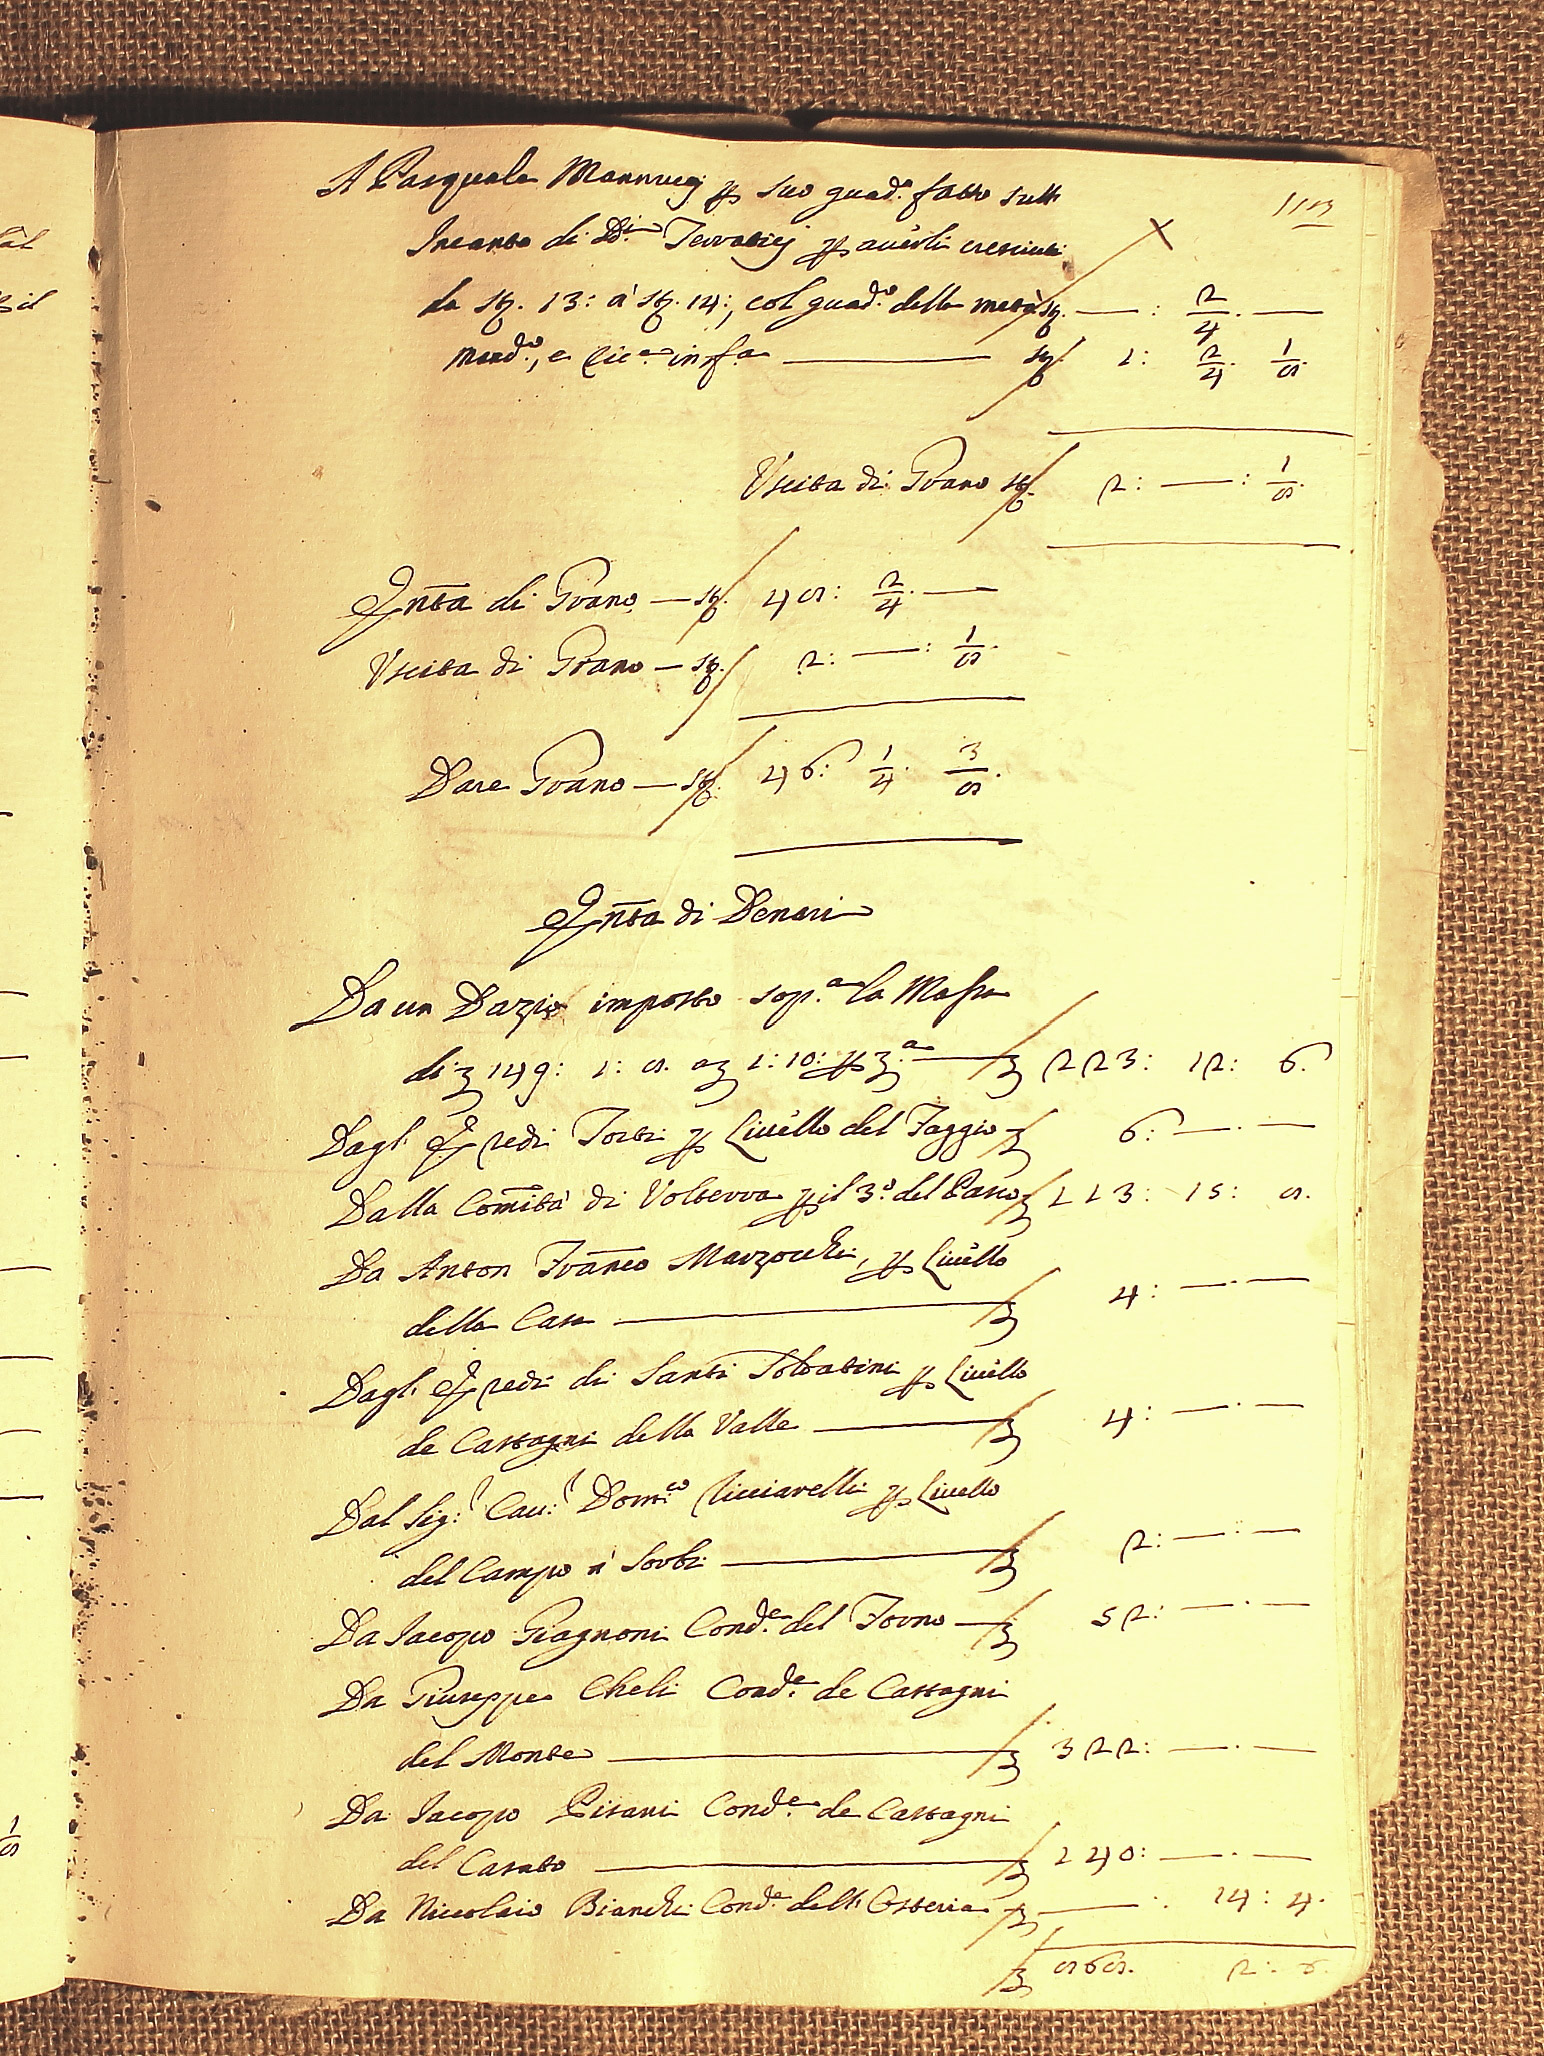 A Pasquale Mannucj p suo guad.o fatto sull'
Incanto di D.i Terraticj p averli cresciuti
da sta. 13: a' sta. 14:, col guad.o della metà sta. — : 2/4. —
Mend.o, e lic.a in sta — sta 1: 2/4. 1/8.
Uscita di Grano sta. 2: — : 1/8.
Entta di Grano — sta. 48: 2/4. —
Uscita di Grano — sta. 2: — : 1/8.
Dare Grano — sta. 46: 1/4. 3/8.
Entta di Denari
Da un Dazio imposto sop.a la Massa
di £ 149: 1: 8. a £ 1: 10: p £.a — £ 223: 12: 6.
Dagl' Eredi Torti p Livello del Faggio £ 6: — . —
Dalla Comità di Volterra p il 3.o del Passo £ 113: 15: 8.
Da Anton Franco Marzocchi, p Livello
della Casa — £ 4: — . —
Dagl' Eredi di Santi Soldatini p Livello
de Castagni della Valle — £ 4: — . —
Dal Sig:r Cav:r Dom.co Ricciarelli p Livello
del Campo a' Sorbi — £ 2: — : —
Da Iacopo Gragnoni Cond.e del Forno — £ 52: — . —
Da Giuseppe Cheli Cond.e de Castagni
del Monte — £ 322: — . —
Da Iacopo Pisani Cond.e de Castagni
del Casato — £ 140: — . —
Da Niccolaio Bianchi Cond.e dell'Osteria £ — : 14: 4.
£ 868. 2: 6.